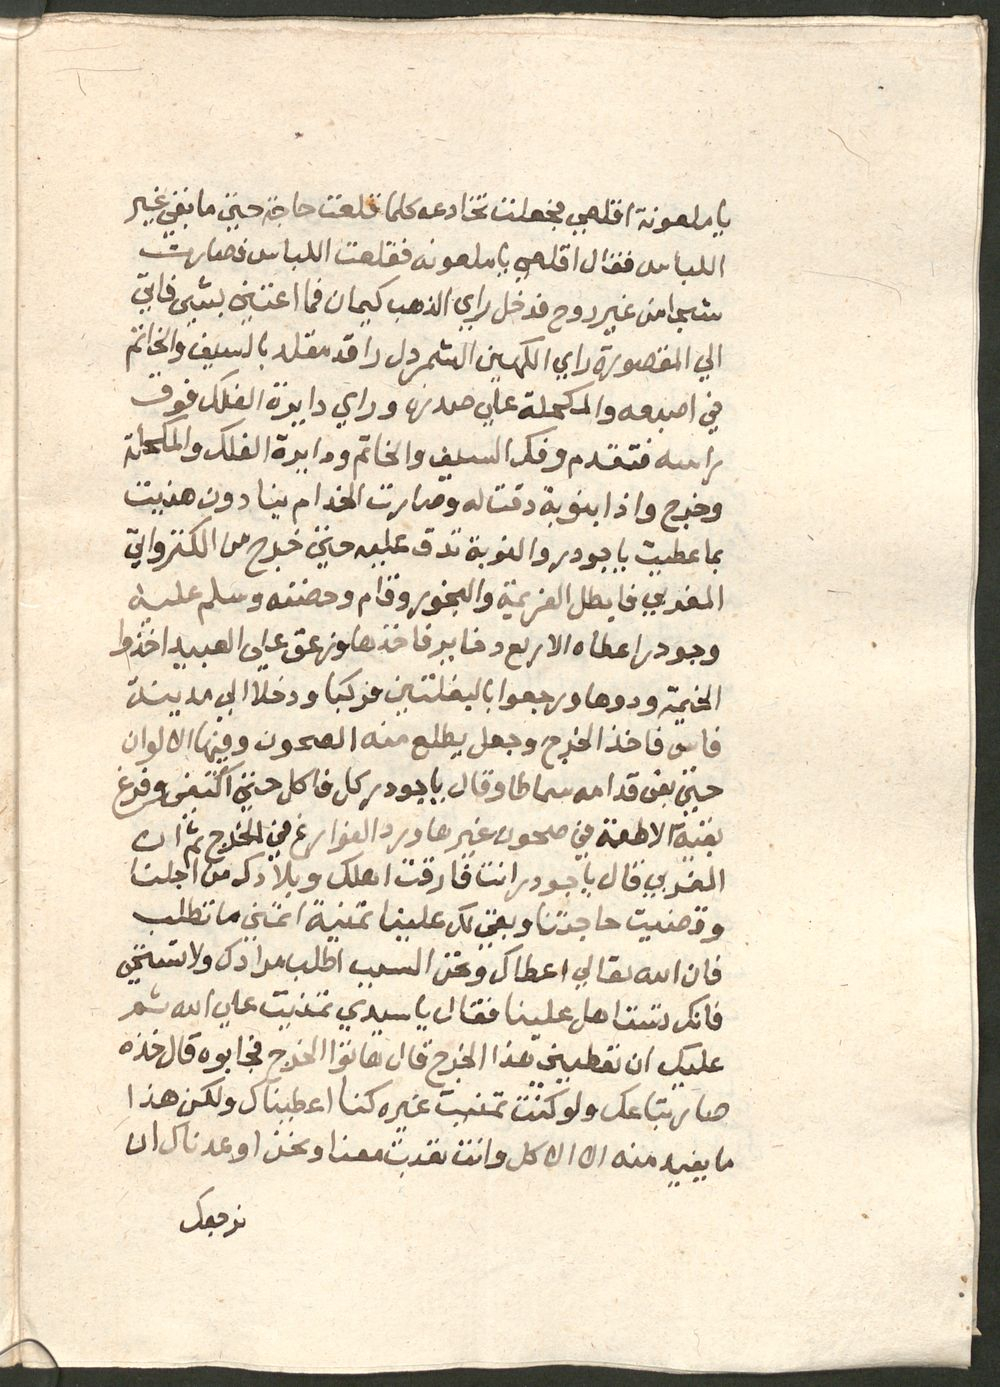 يا ملعونة اقلعي فجعلت تخادعه كلما قلعت حاجة حتي ما بقي غير
اللباس فقال اقلعي يا ملعونه فقلعت اللباس فصارت
شبحا من غير روح فدخل راي الذهب كيمان فما اعتني بشي فاتي
الي المقصورة راي الكهين الشمردل راقد مقلد بالسيف والخاتم
في اصبعه والمكحلة علي صدره وراي دايرة الفلك فوق
راسه فتقدم وفك السيف والخاتم ودايرة الفلك والمكحلة
وخرج واذا بنوبة دقت له وصارت الخدام ينادون هنيت
بما عطيت يا جودر والنوبة تدق عليه حتي خرج من الكنز واتي
المغربي فابطل العزيمة والبخور وقام وحضنه وسلم عليه
وجودر اعطاه الاربع دخاير فاخذها وزعق علي العبيد اخذوا
الخيمة ودوها ورجعوا بالبغلتين فركبا ودخلا الي مدينة
فاس فاخذ الخرج وجعل يطلع منه الصحون وفيها الالوان
حتي بقي قدامه سماطا وقال يا جودر كل فاكل حتي اكتفي وفرغ
بقية الاطعمة في صحون غيرها ورد الفوارغ في الخرج ثم ان
المغربي قال يا جودر انت فارقت اهلك وبلادك من اجلنا
وقضيت حاجتنا وبقي لك علينا تمنية اتمني ما تطلب
فان الله تعالي اعطاك ونحن السبب اطلب مرادك ولا تستحي
فانك تستاهل علينا فقال يا سيدي تمنيت علي الله ثم
عليك ان تعطيني هذا الخرج قال هاتوا الخرج فجابوه قال خذه
صار بتاعك ولو كنت تمنيت غيره كنا اعطيناك ولكن هذا
ما يفيد منه الا الاكل وانت تعبت معنا ونحن اوعدناك ان
نرجعك